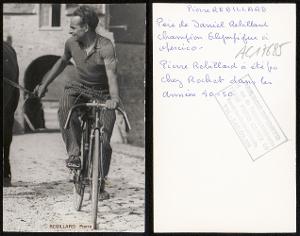 REBILLARD Pierre
Pierre REBILLARD
Père de Daniel Rebillard
champion Olympique à
Mexico.
Pierre Rebillard a été pro
chez Rochet dans les
années 40-50